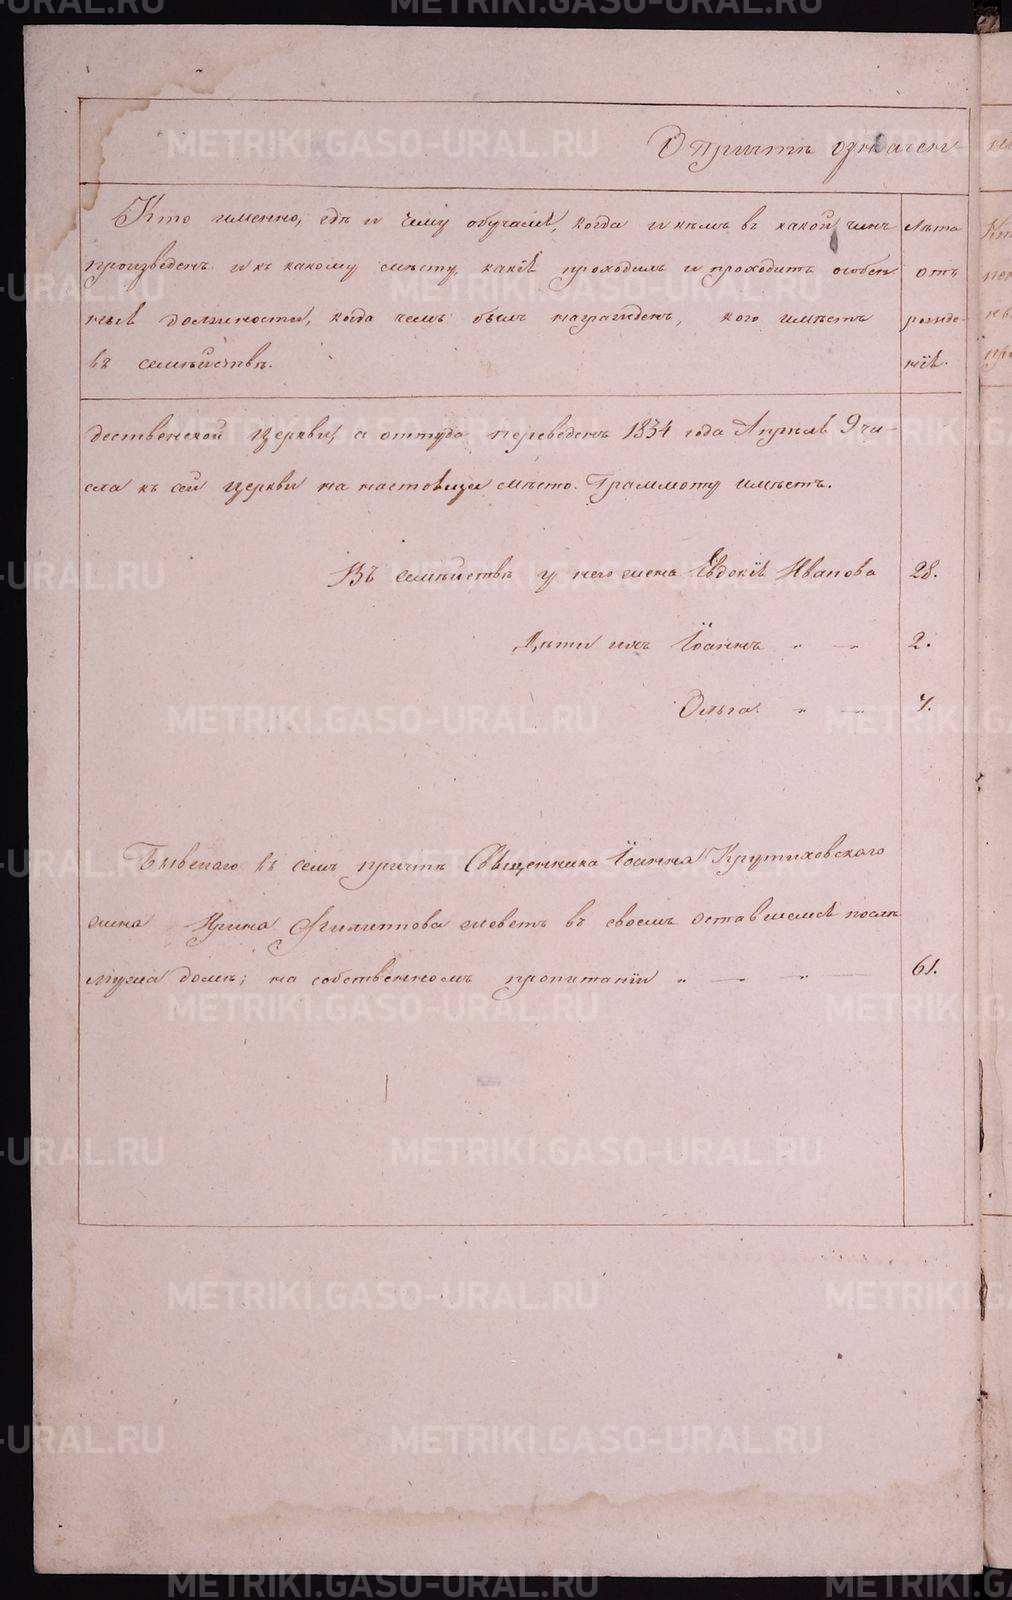 О Причтѣ означен-
Кто именно, гдѣ и чему обучался, когда и кѣмъ въ какой чинъ
произведенъ и къ какому мѣсту, какія проходилъ и проходитъ особен
ныя должности, когда чемъ былъ награжденъ, кого имѣетъ
въ семѣйствѣ.
Лѣта
отъ
рожде-
нія.
дественской Церкви, а оттуда переведенъ 1834 года Апрѣля 9 чи-
сла къ сей церкви на настоящее мѣсто. Граммоту имѣетъ.
Въ семѣйствѣ у него жена Евдокія Иванова 28.
Дѣти ихъ Іоаннъ „ — 2.
Ольга. „ —
Бывшаго въ семъ причтѣ Священника Іоанна Крутиховскаго
жена Ирина Филиппова живетъ въ своемъ оставшемся послѣ
мужа домѣ; на собственномъ пропитаніи „ — „ — 61.
METRIKI.GASO-URAL.RU